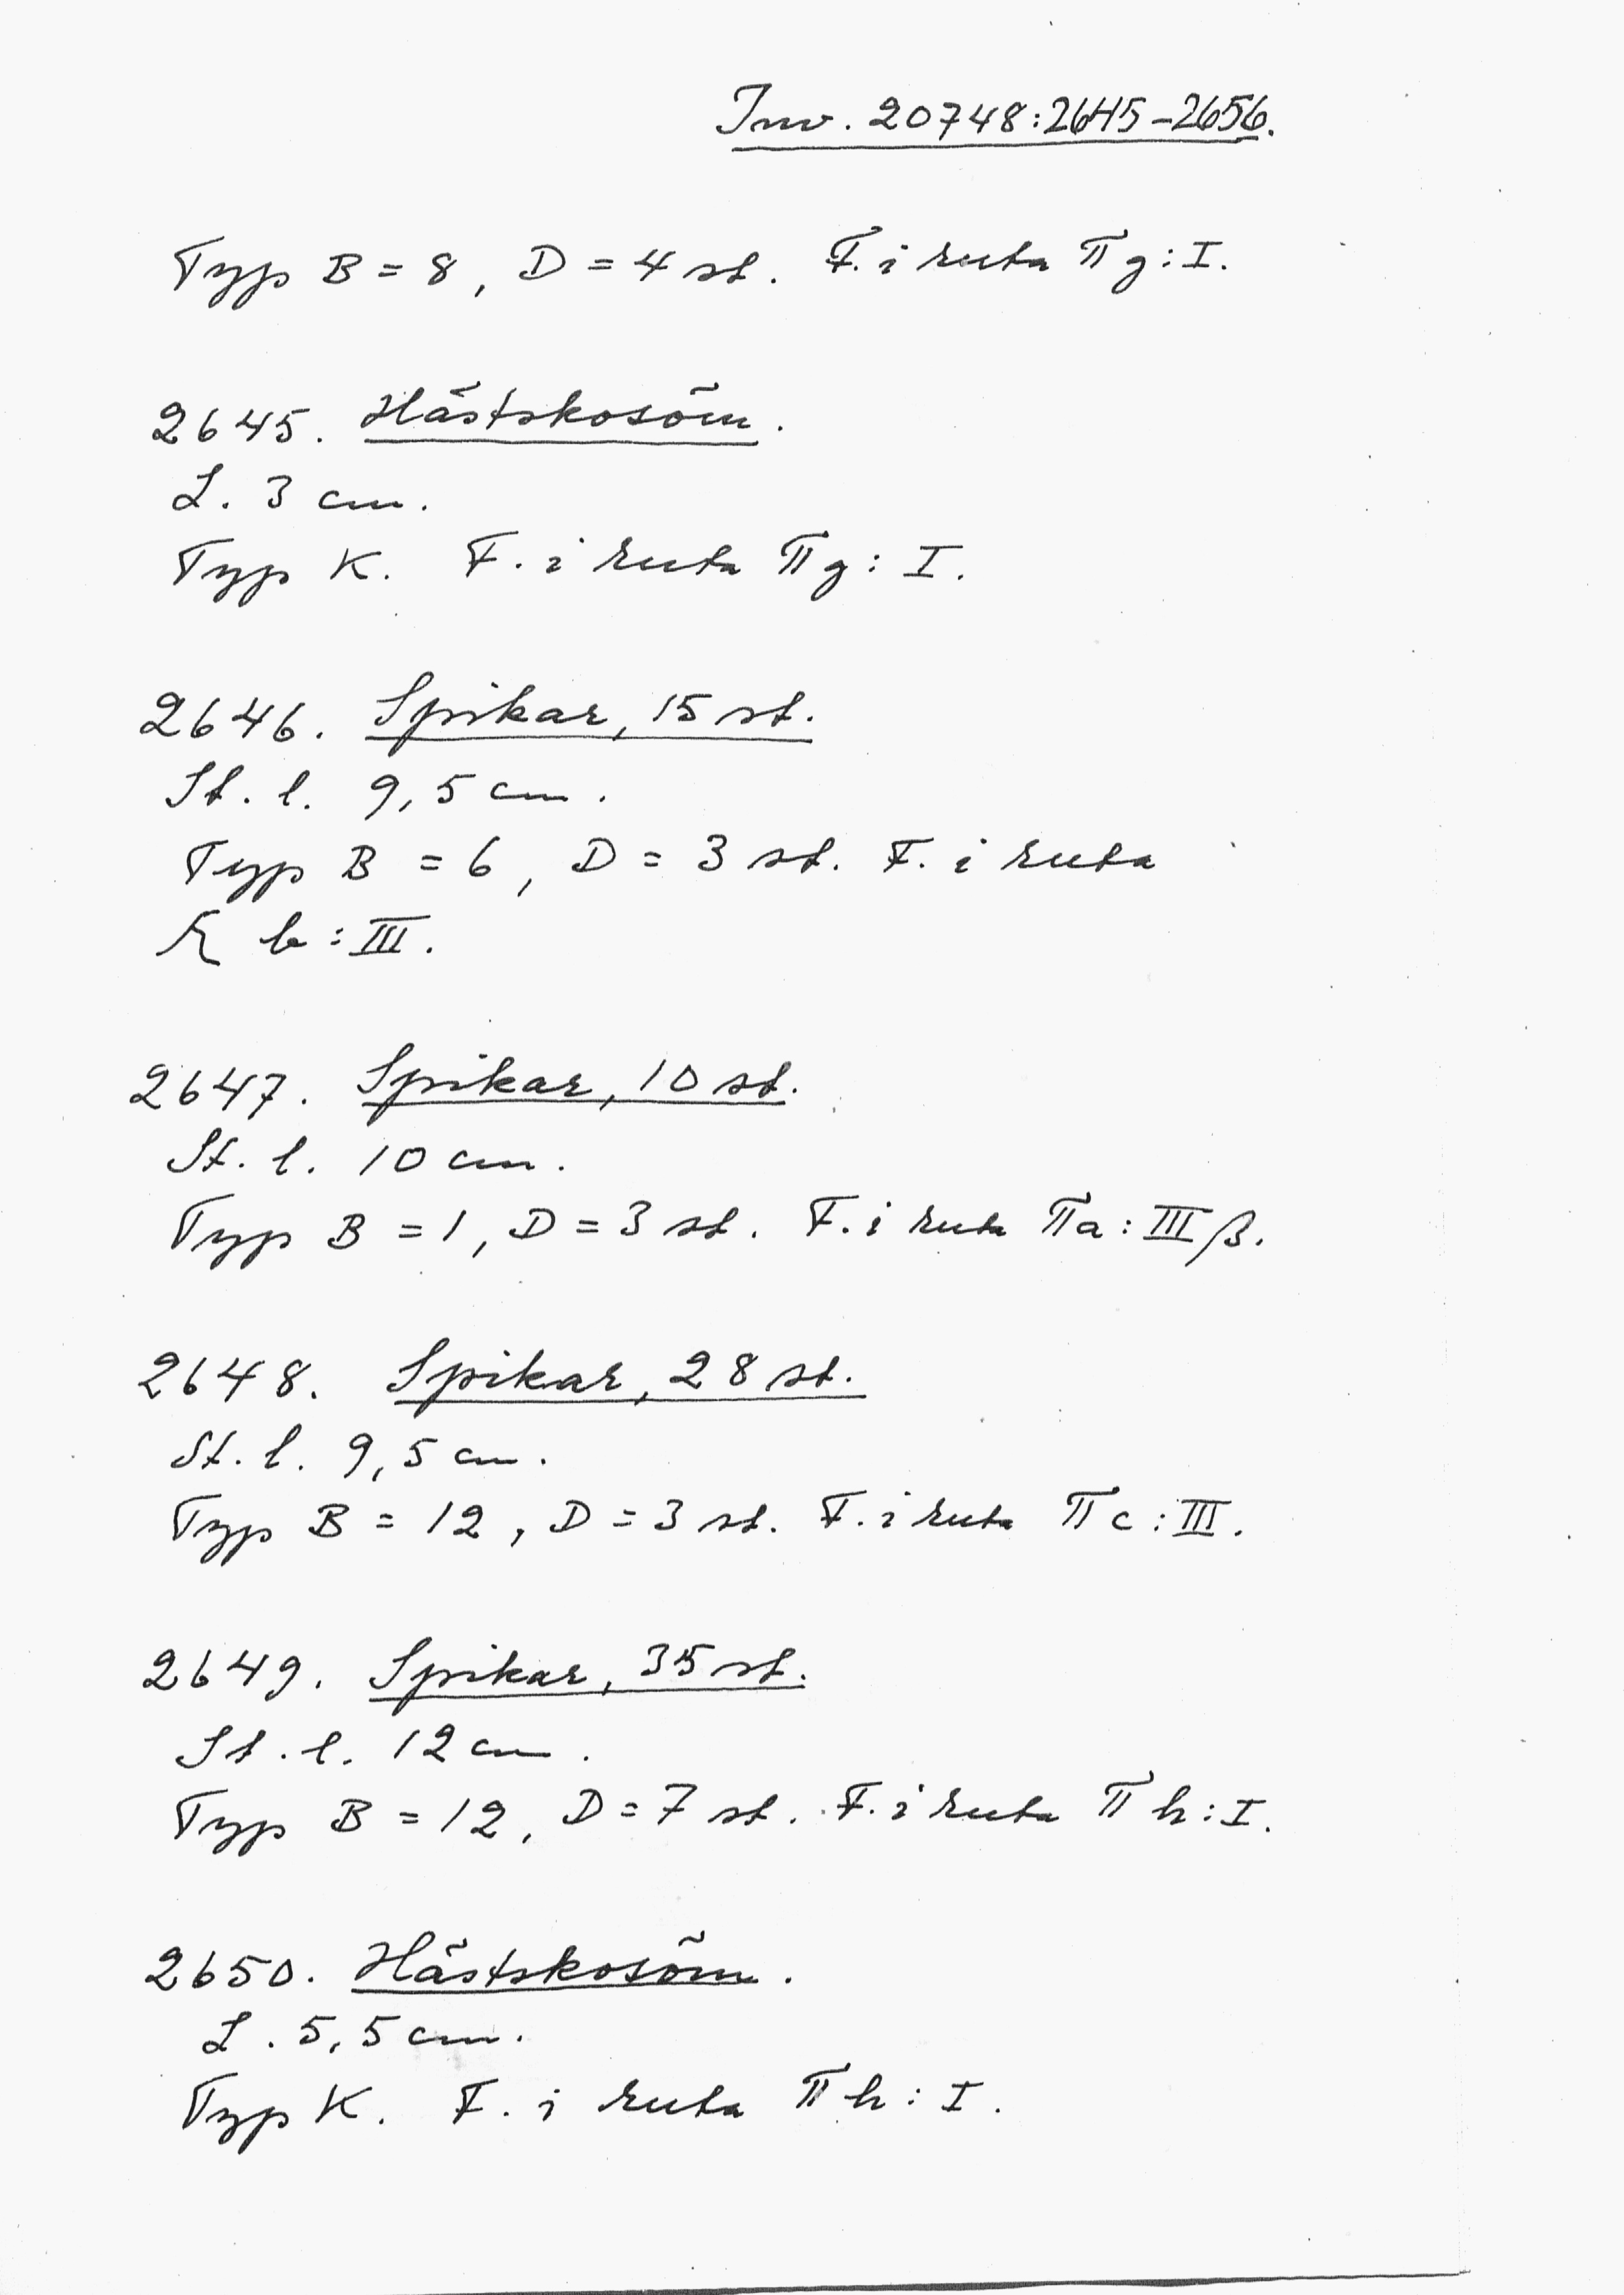 Inv. 20748:2645-2656.
Typ B = 8, D = 4 st. F. i ruta Π g: I.
2645. Hästskosöm.
L. 3 cm.
Typ K. F. i ruta Π g: I.
2646. Spikar, 15 st.
St. l. 9,5 cm.
Typ B = 6, D = 3 st. F. i ruta
b: III.
2647. Spikar, 10 st.
St. l. 10 cm.
Typ B = 1, D = 3 st. F. i ruta Π a: III β.
2648. Spikar, 28 st.
St. l. 9,5 cm.
Typ B = 12, D = 3 st. F. i ruta Π c: III.
2649. Spikar, 35 st.
St. l. 12 cm.
Typ B = 12, D = 7 st. F. i ruta Π h: I.
2650. Hästskosöm.
L. 5,5 cm.
Typ K. F. i ruta Π h: I.